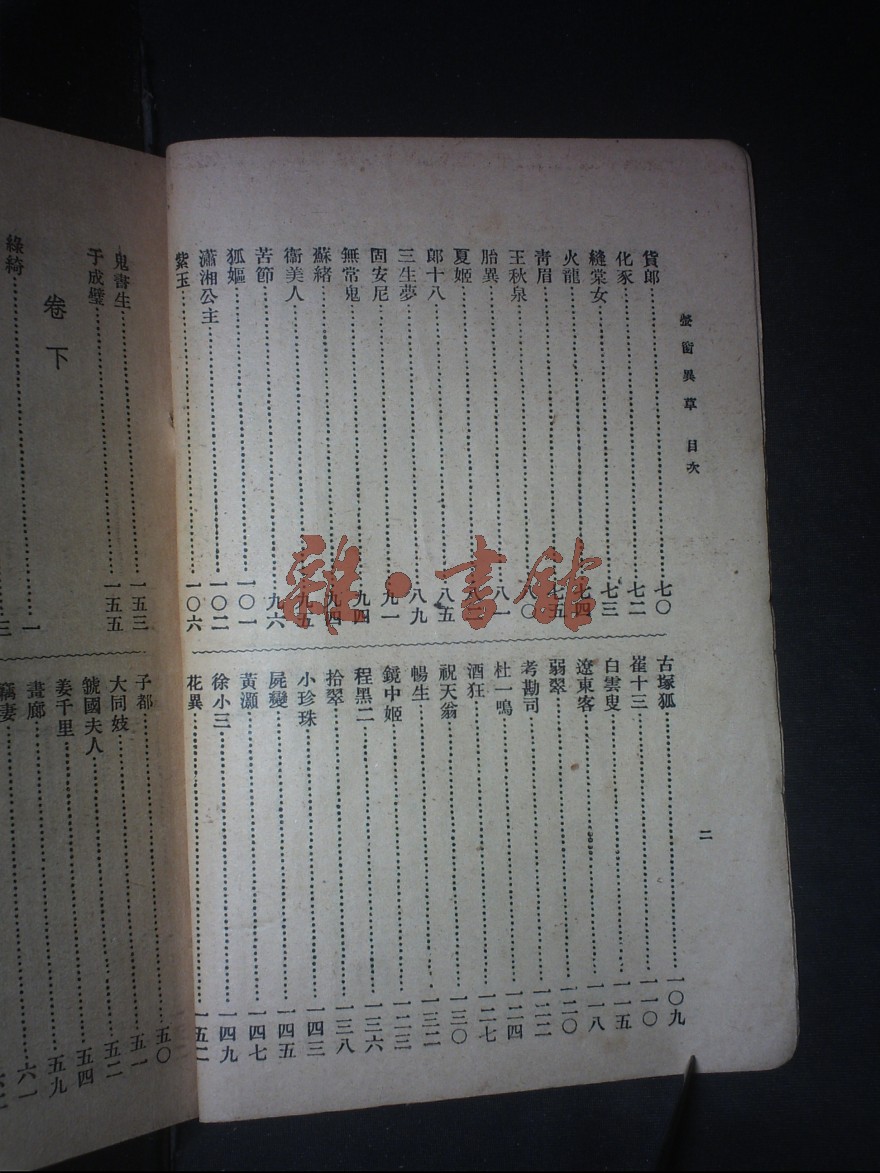 螢窗異草 目次
二
貨郎……七〇
化豕……七二
縫裳女……七三
火龍……七四
靑眉……七五
王秋泉……八〇
胎異……八一
夏姬……八二
郞十八……八五
三生夢……八九
固安尼……九一
無常鬼……九四
蘇緒……九四
衞美人……九五
苦節……九六
狐嫗……一〇一
瀟湘公主……一〇二
紫玉……一〇六
古塚狐……一〇九
崔十三……一一〇
白雲叟……一一五
遼東客……一一八
弱翠……一二〇
考勘司……一二二
杜一鳴……一二四
酒狂……一二七
祝天翁……一三〇
暢生……一三二
鏡中姬……一三三
程黑二……一三六
拾翠……一三八
小珍珠……一四三
屍變……一四五
黃灝……一四七
徐小三……一四九
花異……一五二
鬼書生……一五三
于成璧……一五五
卷下
綠綺……一
三
子都……五〇
大同妓……五一
虢國夫人……五二
姜千里……五四
畫廊……五九
竊妻……六一
雜·書館